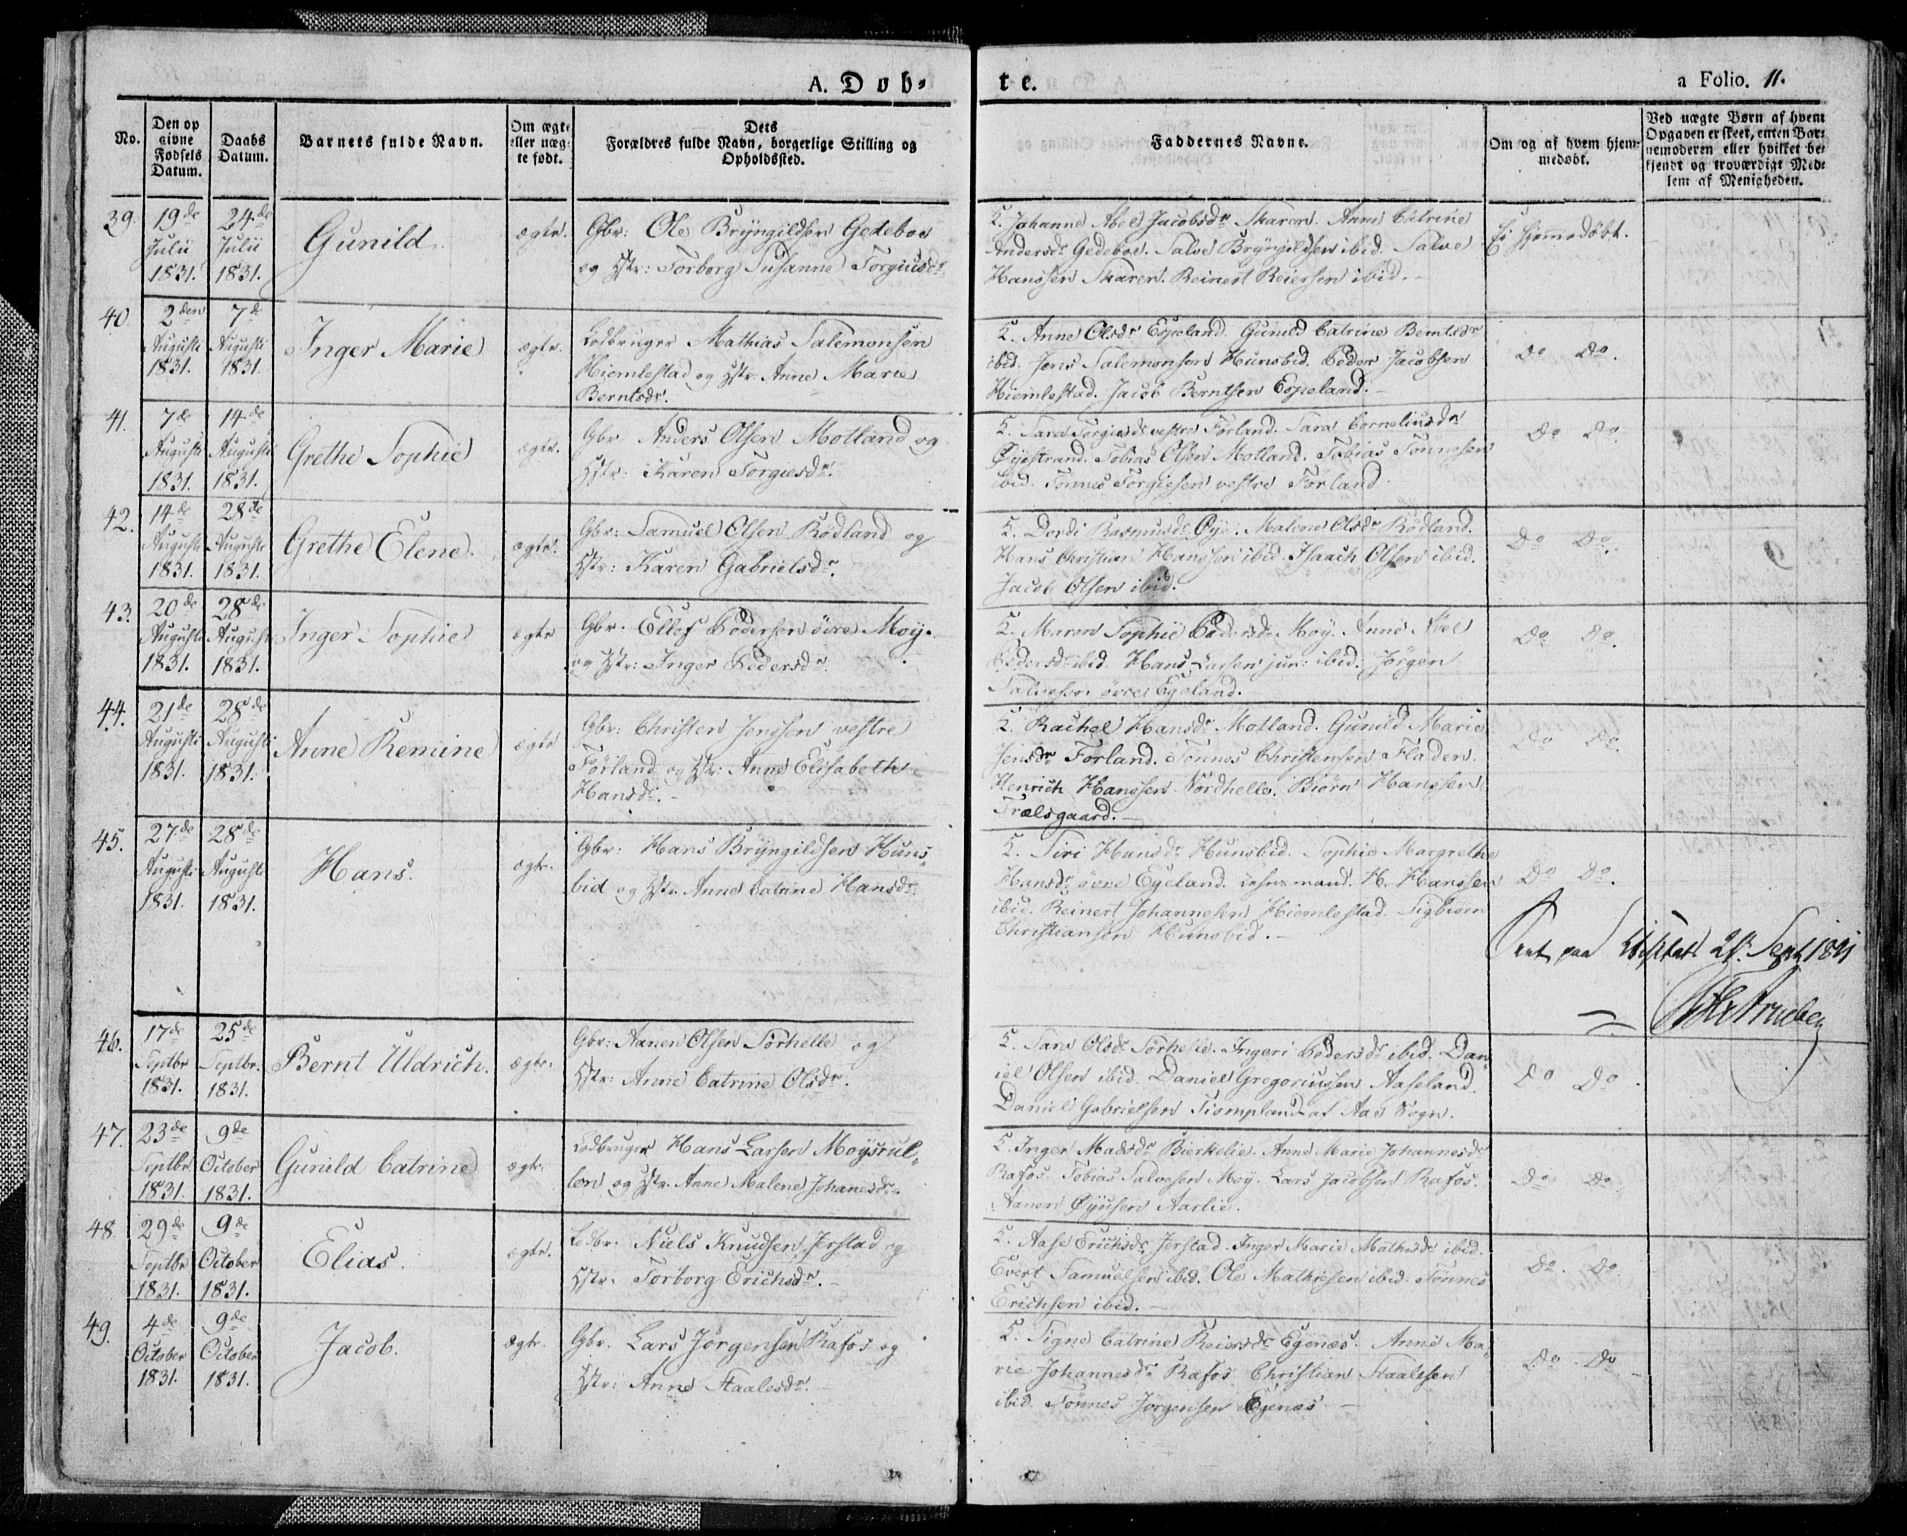 A. Dob-
te.
a Folio. 11.
No.
Den op
givne
Fødsels
Datum.
Daabs
Datum.
Barnets fulde Navn.
Om ægte
eller uæg-
te født.
Dets
Forældres fulde Navn, borgerlige Stilling og
Opholdssted.
Faddernes Navne.
Om og af hvem hjem-
medøbt.
Ved uægte Børn af hvem
Opgaven er skeet, enten Bar-
nemoderen eller hvilket be-
kjendt og troværdigt Med-
lem af Menigheden.
39. 19de Julii 1831. 24de Julii 1831. Gunild ægte.
Gbr: Ole Bryngildsen Gedeboe
og Hstr: Torborg Susanne Torgiusdr.
K. Johanne Abel Jacobsdr Skaren. Anne Catrine
Andersdr Gedeboe. Salve Bryngildsen ibid. Salve
Hanssen Skaren. Reinert Reiersen ibid.
Ei hjemmedøbt.
40. 2den Augusti 1831. 7de Augusti 1831. Inger Marie ægte.
Lodbruger Mathias Salemonsen
Hiemlestad og Hstr: Anne Marie
Berntsdr.
K. Anne Olsdr Egeland. Gunild Catrine Berntsdr
ibid. Jens Salemonsen Hunsbid. Peder Jacobsen
Hiemlestad. Jacob Berntsen Egeland.
Do Do.
41. 7de Augusti 1831. 14de Augusti 1831. Grethe Sophie ægte.
Gbr Anders Olsen Motland og
Hstr: Karen Torgiesdr.
K. Sara Torgiesdr vestre Førland. Sara Corneliusdr
Øyestrand. Tobias Olsen Motland. Tobias Tønnesen
ibid. Tønnes Torgiesen vestre Førland.
Do Do.
42. 14de Augusti 1831. 28de Augusti 1831. Grethe Elene. ægte.
Gbr: Samuel Olsen Rødland og
Hstr: Karen Gabrielsdr.
K. Dordi Rasmusdr Øye. Malene Olsdr Rødland.
Hans Christian Hanssen ibid. Isaach Olsen ibid.
Jacob Olsen ibid.
Do Do.
43. 20de Augusti 1831. 28de Augusti 1831. Inger Sophie ægte
Gbr. Ellef Pedersen øvre Moy.
og Hstr: Inger Pedersdr.
K. Maren Sophie Pedersdr Moy. Anne Abel
Pedersdr ibid. Hans Larsen jun: ibid. Jørgen
Salvesen øvre Egeland.
Do Do.
44. 21de Augusti 1831. 28de Augusti 1831. Anne Remine ægte
Gbr: Christen Jenssen vestre
Førland og Hstr: Anne Elisabeth
Hansdr.
K. Rachel Hansdr Motland. Gunild Marie
Jensdr Førland. Tønnes Christensen Fladen.
Henrich Hanssen Nordhelle. Biørn Hanssen
Trælsgaard.
Do Do.
45. 27de Augusti 1831. 28de Augusti 1831. Hans. ægte.
Gbr: Hans Bryngildsen Huns-
bid og Hstr. Anne Catrine Hansdr.
K. Siri Hansdr Hunsbid. Sophie Margrethe
Hansdr øvre Egeland. Lehnsmand. H. Hanssen
ibid. Reinert Johannesen Hiemlestad. Sigbiørn
Christiansen Hunsbid.
Do Do.
Seet paa Visitats 21 Sept 1831
46. 17de Septbr 1831. 25de Septbr. 1831. Bernt Uldrich. ægte.
Gbr: Aanen Olsen Sørhelle og
Hstr: Anne Catrine Olsdr.
K. Sara Olsdr Sørhelle. Ingeri Pedersdr ibid. Dan-
iel Olsen ibid. Daniel Gregoriussen Aaseland.
Daniel Gabrielsen Tiompland af Aas Sogn.
Do Do.
47. 23de Septbr 1831. 9de October 1831. Gunild Catrine ægte.
Lodbruger Hans Larsen Moysrul-
len og Hstr. Anne Malene Johanesdr.
K. Inger Madsdr Bierkelie. Anne Marie Johannesdr
Rafos. Tobias Salvesen Moy. Lars Jacobsen Rafos.
Aanen Øyusen Aarlie.
Do Do.
48. 29de Septbr 1831. 9de October 1831. Elias. ægte.
Lodbr. Niels Knudsen Jerstad og
Hstr. Torborg Erichsdr.
K. Aase Erichsdr Jerstad. Inger Marie Mathisdr ibid.
Evert Samuelsen ibid. Ole Mathiesen ibid. Tønnes
Erichsen ibid.
Do. Do.
49. 4de October 1831. 9de October 1831. Jacob. ægte.
Gbr. Lars Jørgensen Rafos og
Hstr: Anne Staalesdr.
K. Signe Catrine Reiersdr Egenæs. Anne Ma-
rie Johannesdr Rafos. Christian Staalesen
ibid. Tønnes Jørgensen Egenæs.
Do. Do